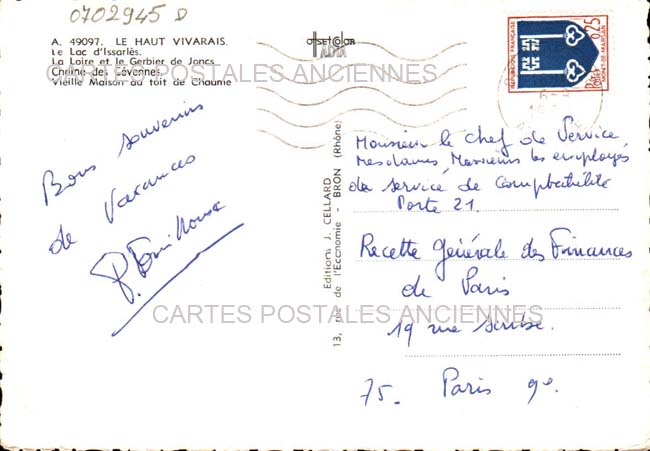 0702945 D
A. 49097. LE HAUT VIVARAIS.
Le Lac d'Issarlès.
La Loire et le Gerbier de Joncs
Chaîne des Cévennes.
Vieille Maison au toit de Chaume
offset color
CARTES POSTALES ANCIENNES
Bons souvenirs
de Vacances
P.
Editions J. CELLARD
13, rue de l'Economie - BRON (Rhône)
REPUBLIQUE FRANÇAISE
0,25
POSTES
MONT-DE-MARSAN
Monsieur le Chef de Service
Mesdames Messieurs les employés
du service de Comptabilité
Porte 21.
Recette Générale des Finances
de Paris
19 rue scribe.
75. Paris 9e.
CARTES POSTALES ANCIENNES